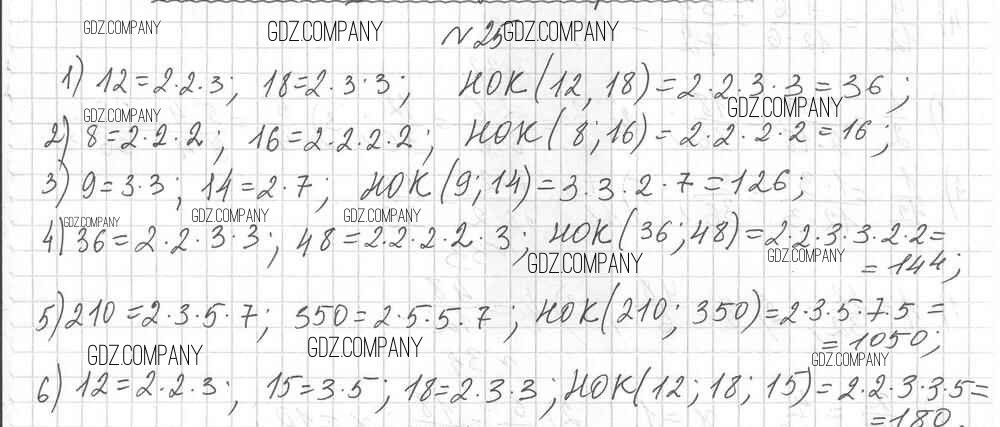 GDZ.COMPANY GDZ.COMPANY № 25 GDZ.COMPANY
1) 12=2·2·3; 18=2·3·3; НОК(12,18)=2·2·3·3=36;
GDZ.COMPANY GDZ.COMPANY
2) 8=2·2·2; 16=2·2·2·2; НОК(8;16)=2·2·2·2=16;
3) 9=3·3; 14=2·7; НОК(9;14)=3·3·2·7=126;
GDZ.COMPANY GDZ.COMPANY GDZ.COMPANY
4) 36=2·2·3·3; 48=2·2·2·2·3; НОК(36;48)=2·2·3·3·2·2=
GDZ.COMPANY GDZ.COMPANY
=144;
5) 210=2·3·5·7; 350=2·5·5·7; НОК(210; 350)=2·3·5·7·5=
=1050;
GDZ.COMPANY GDZ.COMPANY GDZ.COMPANY
6) 12=2·2·3; 15=3·5; 18=2·3·3; НОК(12; 18; 15)=2·2·3·3·5=
=180.